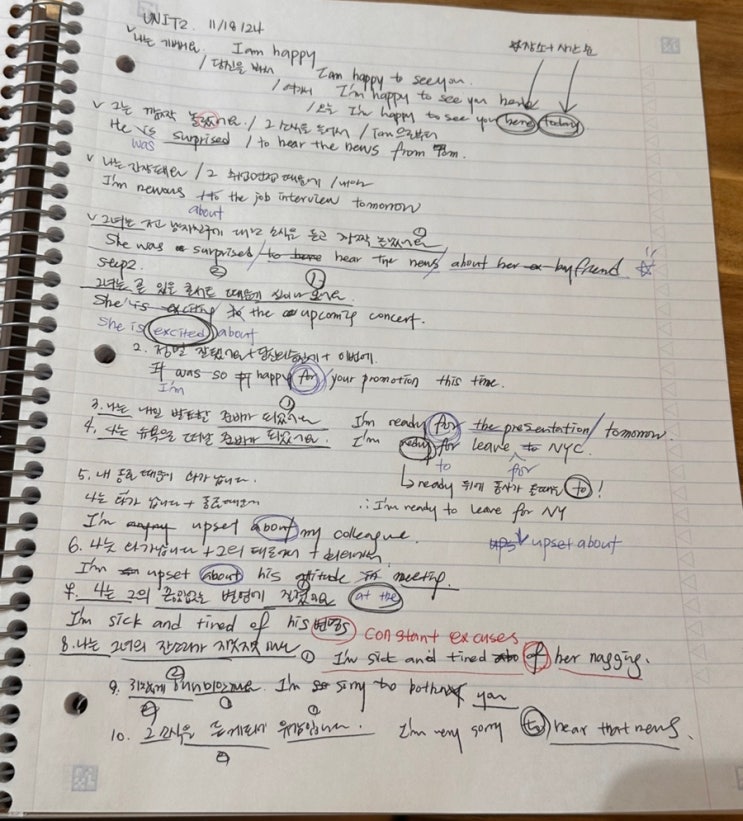 UNIT2. 11/18/24
나는 기뻐요. I am happy
장소 + 시간
/ 당신을 봐서 I am happy to see you.
/ 여기서 I'm happy to see you here
/ 오늘 I'm happy to see you here today
그는 깜짝 놀랐어요. / 그 소식을 들어서 / Tom으로부터
He is surprised / to hear the news from Tom.
was
나는 긴장돼요 / 그 취업면접 때문에 / 내일
I'm nervous to the job interview tomorrow
about
그녀는 전 남자친구에 대한 소식을 듣고 깜짝 놀랐어요 ①
She was surprised / to hear the news / about her ex boyfriend ☆
step2. ② ①
그녀는 곧 있을 콘서트 때문에
She is exciting to the upcoming concert.
She is excited about
2. 정말 잘됐어요 + 당신의 + 이번에.
It was so happy for your promotion this time.
I'm
3. 나는 내일 발표할 준비가 되었어요 ① I'm ready for the presentation / tomorrow.
4. 나는 뉴욕으로 떠날 준비가 되었어요. I'm ready for leave to NYC.
to for
5. 내 동료 때문에 화가 납니다. ↳ ready 뒤에 동사가 올때는 to !
나는 화가 납니다 + 동료때문에 ∴ I'm ready to leave for NY
I'm angry upset about my colleague.
6. 나는 화가납니다 + 그의 태도에 + 회의에서. ups ↓ upset about
I'm upset about his attitude in meeting.
7. 나는 그의 끊임없는 변명에 질렸어요 at the
I'm sick and tired of his 변명 constant excuses
8. 나는 그녀의 잔소리가 지긋지긋 해요 ① I'm sick and tired abo of her nagging.
9. 귀찮게 해서 미안해요. I'm so sorry to bother you
② ①
10. 그 소식을 듣게되어 유감입니다. I'm very sorry to hear that news.
② ①